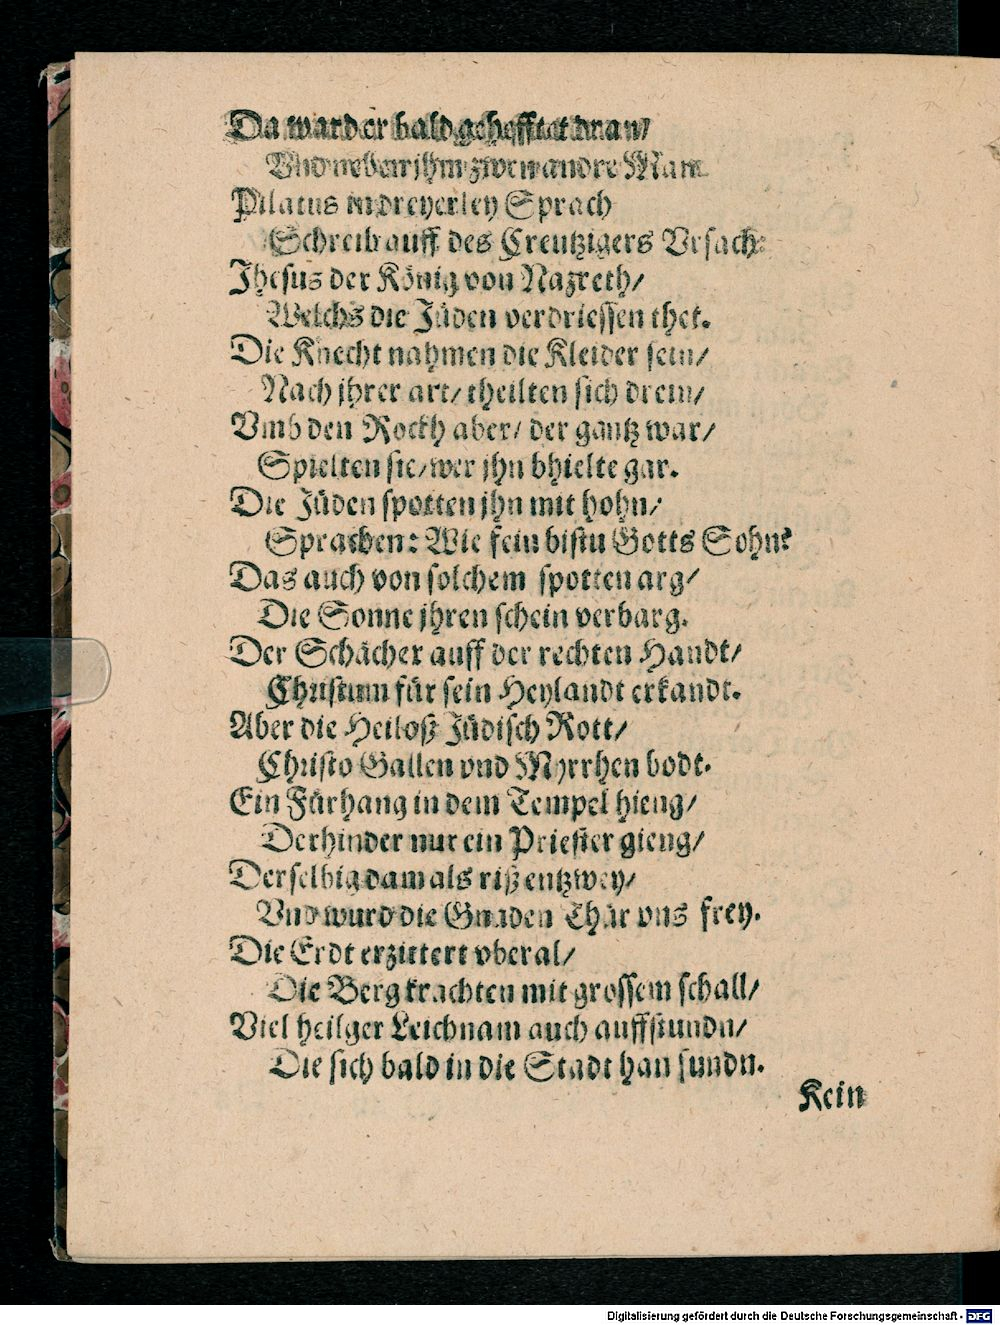 Da ward er bald gehefftet dran/
Vnd neben jhm zwen andre Man.
Pilatus in dreyerley Sprach
Schreib auff des Creutzigers Vrsach:
Jhesus der König von Nazreth/
Welchs die Jüden verdriessen thet.
Die Knecht nahmen die Kleider sein/
Nach jhrer art/ theilten sich drein/
Vmb den Rockh aber/ der gantz war/
Spielten sie/ wer jhn bhielte gar.
Die Jüden spotten jhn mit hohn/
Sprachen: Wie fein bistu Gotts Sohn?
Das auch von solchem spotten arg/
Die Sonne jhren schein verbarg.
Der Schächer auff der rechten Handt/
Christum für sein Heylandt erkandt.
Aber die Heiloß Jüdisch Rott/
Christo Gallen vnd Myrrhen bodt.
Ein Fürhang in dem Tempel hieng/
Derhinder nur ein Priester gieng/
Derselbig damals riß entzwey/
Vnd wurd die Gnaden Thür vns frey.
Die Erdt erzittert vberal/
Die Berg krachten mit grossem schall/
Viel heilger Leichnam auch auffstundn/
Die sich bald in die Stadt han fundn.
Kein
Digitalisierung gefördert durch die Deutsche Forschungsgemeinschaft - DFG